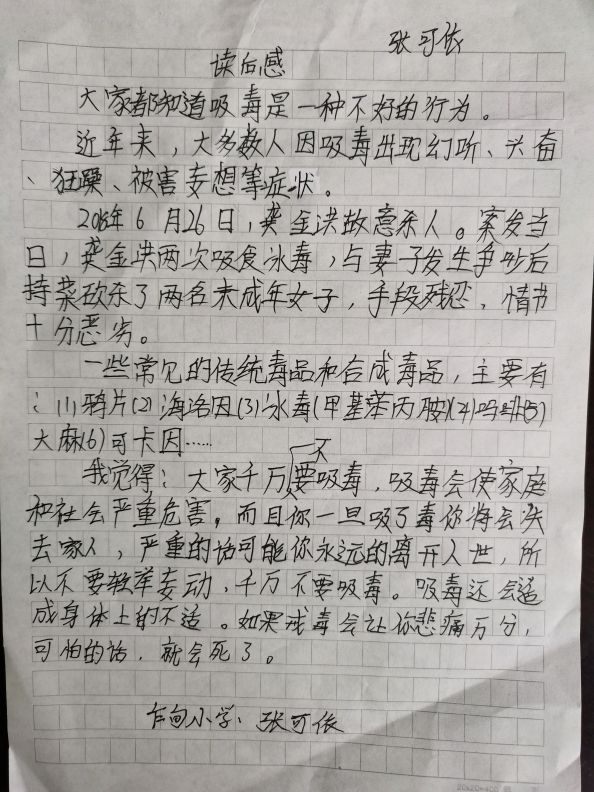 张可依
读后感
大家都知道吸毒是一种不好的行为。
近年来，大多数人因吸毒出现幻听、兴奋
、狂躁、被害妄想等症状。
2016年6月26日，龚金洪故意杀人。案发当
日，龚金洪两次吸食冰毒，与妻子发生争吵后
持菜砍杀了两名未成年女子，手段残忍，情节
十分恶劣。
一些常见的传统毒品和合成毒品，主要有
：(1)鸦片(2)海洛因(3)冰毒(甲基苯丙胺)(4)吗啡(5)
大麻(6)可卡因……
我觉得：大家千万不要吸毒，吸毒会使家庭
和社会严重危害。而且你一旦吸了毒你将会失
去家人，严重的话可能你永远的离开人世，所
以不要轻举妄动，千万不要吸毒。吸毒还会造
成身体上的不适。如果戒毒会让你悲痛万分，
可怕的话，就会死了。
乍甸小学：张可依